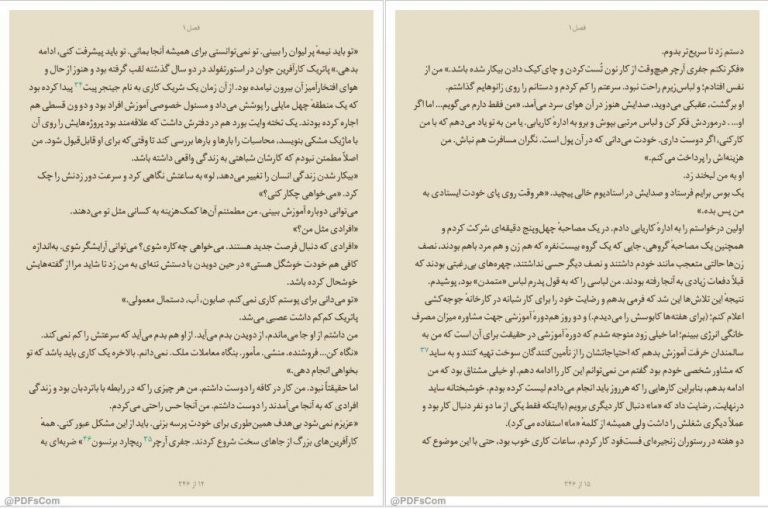 فصل ۱
«تو باید نیمهٔ پر لیوان را ببینی. تو نمی‌توانستی برای همیشه آنجا بمانی. تو باید پیشرفت کنی، ادامه
بدهی.» پاتریک کارآفرین جوان در استورتفولد در دو سال گذشته لقب گرفته بود و هنوز از حال و
هوای افتخارآمیز آن بیرون نیامده بود. از آن زمان یک شریک کاری به نام جینجر پیت۳۴ پیدا کرده بود
که یک منطقهٔ چهل مایلی را پوشش می‌داد و مسئول خصوصی آموزش افراد بود و دو ون قسطی هم
اجاره کرده بودند. یک تخته وایت بورد هم در دفترش داشت که علاقه‌مند بود پروژه‌هایش را روی آن
با ماژیک مشکی بنویسد، محاسبات را بارها و بارها بررسی کند تا وقتی‌که برای او قابل‌قبول شود. من
اصلاً مطمئن نبودم که کارشان شباهتی به زندگی واقعی داشته باشد.
«بیکار شدن زندگی انسان را تغییر می‌دهد، لو» به ساعتش نگاهی کرد و سرعت دور زدنش را چک
کرد. «می‌خواهی چکار کنی؟»
می‌توانی دوباره آموزش ببینی. من مطمئنم آن‌ها کمک‌هزینه به کسانی مثل تو می‌دهند.
«افرادی مثل من؟»
«افرادی که دنبال فرصت جدید هستند. می‌خواهی چه‌کاره شوی؟ می‌توانی آرایشگر شوی. به‌اندازه
کافی هم خودت خوشگل هستی» در حین دویدن با دستش تنه‌ای به من زد تا شاید مرا از گفته‌هایش
خوشحال کرده باشد.
«تو می‌دانی برای پوستم کاری نمی‌کنم. صابون، آب، دستمال معمولی.»
پاتریک کم‌کم داشت عصبی می‌شد.
من داشتم از او جا می‌ماندم، از دویدن بدم می‌آید. از او هم بدم می‌آید که سرعتش را کم نمی‌کند.
«نگاه کن... فروشنده. منشی، مأمور. بنگاه معاملات ملک. نمی‌دانم. بالاخره یک کاری باید باشد که تو
بخواهی انجام دهی.»
اما حقیقتاً نبود. من کار در کافه را دوست داشتم. من هر چیزی را که در رابطه با باتردبان بود و زندگی
افرادی که به آنجا می‌آمدند را دوست داشتم. من آنجا حس راحتی می‌کردم.
«عزیزم نمی‌شود بی‌هدف همین‌طوری برای خودت پرسه بزنی. باید از این مشکل عبور کنی. همهٔ
کارآفرین‌های بزرگ از جاهای سخت شروع کردند. جفری آرچر۳۵ ریچارد برنسون۳۶» ضربه‌ای به
۱۲ از ۳۴۶
@PDFsCom
فصل ۱
دستم زد تا سریع‌تر بدوم.
«فکر نکنم جفری آرچر هیچ‌وقت از کار نون تُست‌کردن و چای‌کیک دادن بیکار شده باشد.» من از
نفس افتادم؛ و لباس‌زیرم راحت نبود. سرعتم را کم کردم و دستانم را روی زانوهایم گذاشتم.
او برگشت، عقبکی می‌دوید، صدایش هنوز در آن هوای سرد می‌آمد. «من فقط دارم می‌گویم... اما اگر
او... . درموردش فکر کن و لباس مرتبی بپوش و برو به ادارهٔ کاریابی. یا من به تو یاد می‌دهم که با من
کار کنی، اگر دوست داری. خودت می‌دانی که در آن پول است. نگران مسافرت هم نباش. من
هزینه‌اش را پرداخت می‌کنم.»
او به من لبخند زد.
یک بوس برایم فرستاد و صدایش در استادیوم خالی پیچید. «هر وقت روی پای خودت ایستادی به
من پس بده.»
اولین درخواستم را به ادارهٔ کاریابی دادم. در یک مصاحبهٔ چهل‌وپنج دقیقه‌ای شرکت کردم و
همچنین یک مصاحبهٔ گروهی، جایی که یک گروه بیست‌نفره که هم زن و هم مرد باهم بودند، نصف
زن‌ها حالتی متعجب مانند خودم داشتند و نصف دیگر حسی نداشتند، چهره‌های بی‌رغبتی بودند که
قبلاً دفعات زیادی به آنجا رفته بودند. من لباسی را که به قول پدرم لباس «متمدن» بود، پوشیدم.
نتیجهٔ این تلاش‌ها این شد که فرمی بدهم و رضایت خود را برای کار شبانه در کارخانهٔ جوجه‌کشی
اعلام کنم؛ (برای هفته‌ها کابوسش را می‌دیدم.) و دو روز هم دورهٔ آموزشی جهت مشاوره میزان مصرف
خانگی انرژی ببینم؛ اما خیلی زود متوجه شدم که دورهٔ آموزشی در حقیقت برای آن است که من به
سالمندان خرفت آموزش بدهم که احتیاجاتشان را از تأمین کنندگان سوخت تهیه کنند و به ساید۳۷
که مشاور شخصی خودم بود گفتم من نمی‌توانم این کار را ادامه دهم. او خیلی مشتاق بود که من
ادامه بدهم، بنابراین کارهایی را که هرروز باید انجام می‌دادم لیست کرده بودم. خوشبختانه ساید
درنهایت، رضایت داد که «ما» دنبال کار دیگری برویم (بااینکه فقط یکی از ما دو نفر دنبال کار بود و
عملاً دیگری شغلش را داشت ولی همیشه از کلمهٔ «ما» استفاده می‌کرد).
دو هفته در رستوران زنجیره‌ای فست‌فود کار کردم. ساعات کاری خوب بود، حتی با این موضوع که
۱۵ از ۳۴۶
@PDFsCom